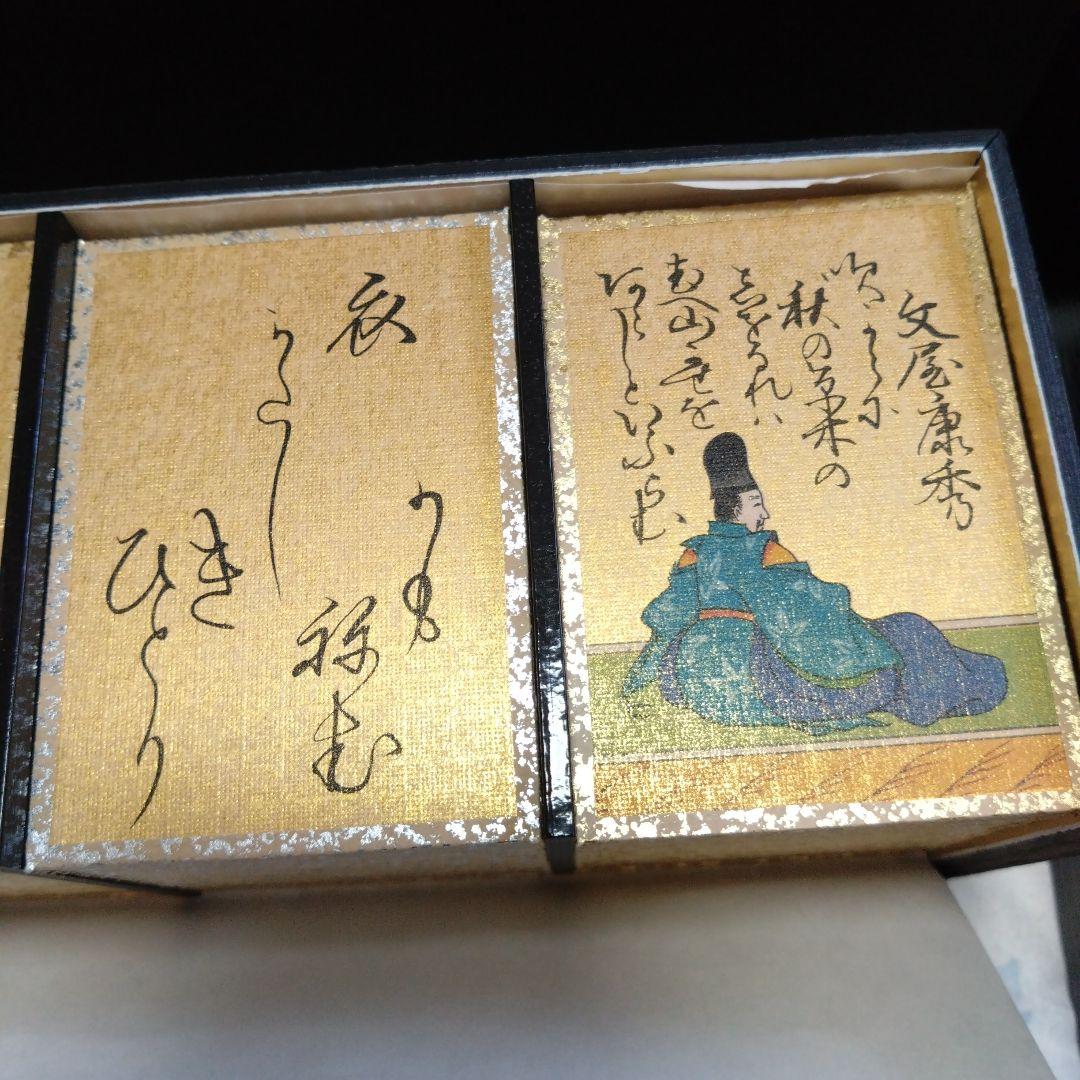 文屋康秀
吹からに
秋の草木の
志をるれハ
むへ山風を
あらしといふらむ
衣
かたし
き
ひとり
かも
祢
む